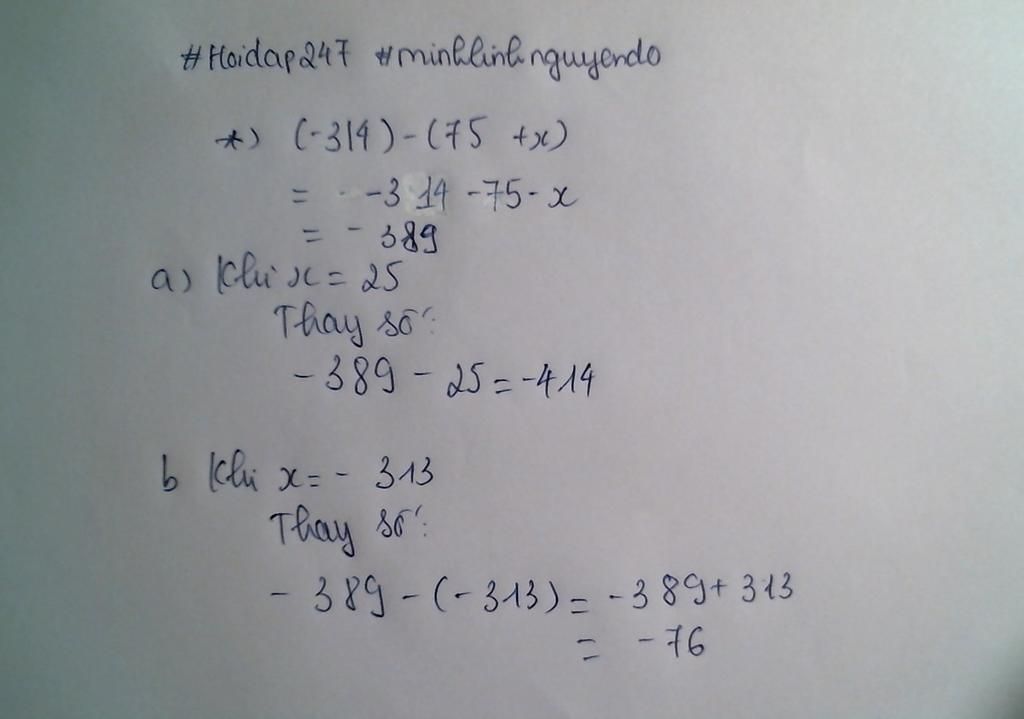 #Hoidap247 #minhlinhnguyendo
*) (-314) - (75 + x)
= -314 - 75 - x
= - 389
a) Khi x = 25
Thay số:
- 389 - 25 = -414
b Khi x = - 313
Thay số:
- 389 - (-313) = -389 + 313
= -76